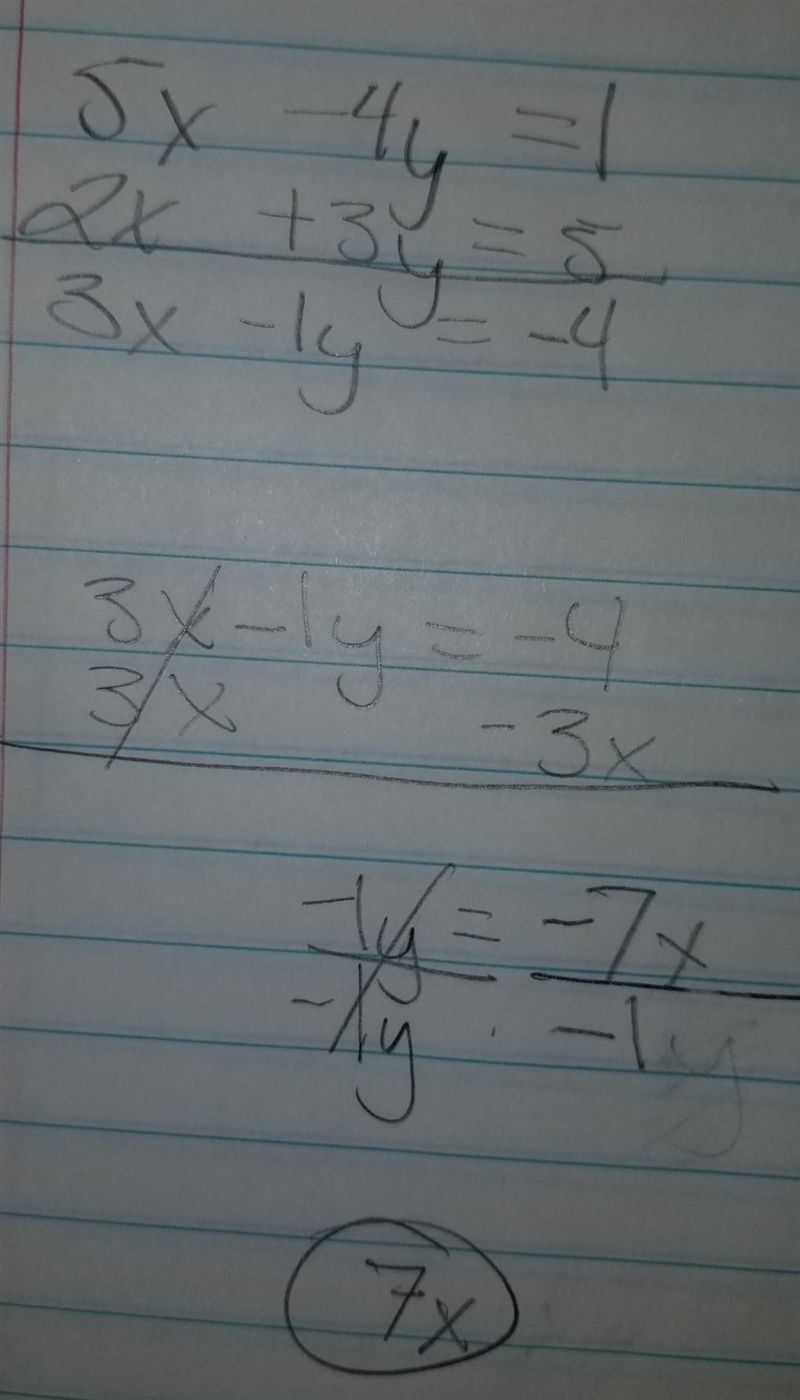 5x -4y =1
2x +3y = 5
3x -1y = -4
3x -1y = -4
3x -3x
-1y = -7x
-1y . -1y
7x